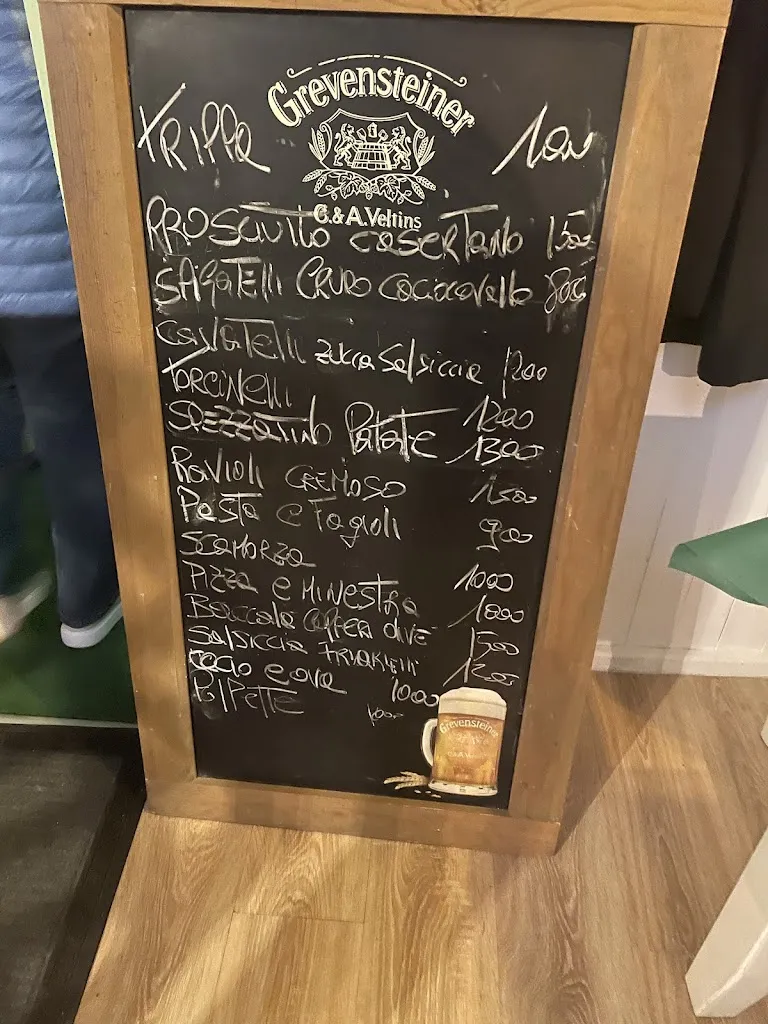 Grevensteiner
TRIPPA 1000
C. & A. Veltins
PROSCIUTTO CASERTANO 1500
SAGATELLI CRUDO CACIOCAVALLO 800
CAVATELLI ZUCCA SALSICCIA 1200
TORCINELLI 1200
SPEZZATINO PATATE 1300
RAVIOLI CREMOSO 1500
PASTA e FAGIOLI 900
SCAMORZA 1000
PIZZA e MINESTRA 1000
BACCALA CAPPERI OLIVE 1500
SALSICCIA FRIARIELLI 1200
CACIO e OVA 1000
POLPETTE 1000
Grevensteiner